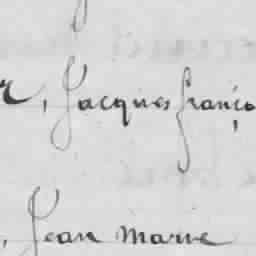 , Jacques franço
, Jean Marie